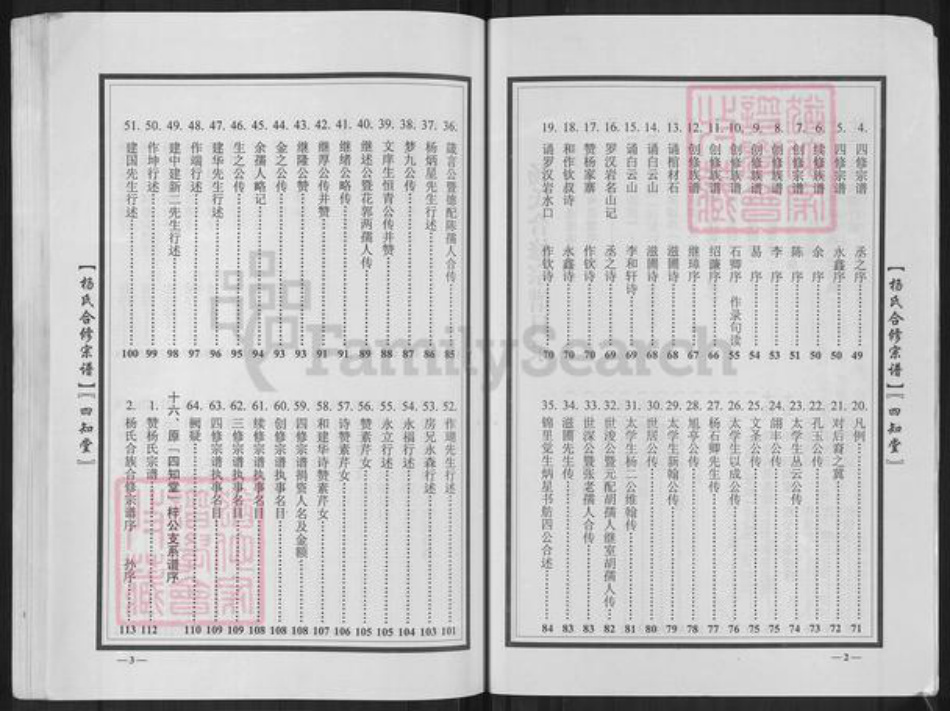 【杨氏合修宗谱】【四知堂】
4. 四修宗谱 丞之序 49
5. 四修宗谱 永鑫序 50
6. 续修族谱 余 序 50
7. 创修宗谱 陈 序 51
8. 创修族谱 李 序 53
9. 创修族谱 易 序 54
10. 创修族谱 石卿序 作录句读 55
11. 创修族谱 绍濂序 66
12. 创修族谱 继璋序 67
13. 诵棺材石 滋圃诗 68
14. 诵白云山 滋圃诗 68
15. 诵白云山 李和轩诗 69
16. 罗汉岩名山记 丞之诗 69
17. 赞杨家寨 作钦诗 70
18. 和作钦叔诗 永鑫诗 70
19. 诵罗汉岩水口 作钦诗 70
20. 凡例 71
21. 对后裔之冀 72
22. 孔玉公传 73
23. 太学生丛云公传 74
24. 翮丰公传 75
25. 文圣公传 75
26. 太学生以成公传 76
27. 杨石卿先生传 77
28. 旭亭公传 78
29. 太学生新翰公传 79
30. 世居公传 80
31. 太学生杨二公维翰传 81
32. 世浚公暨元配胡孺人继室胡孺人传 82
33. 世深公暨张老孺人合传 83
34. 滋圃先生传 83
35. 锦里党生炳星书舫四公合述 84
—2—
36. 箴言公暨德配陈孺人合传 85
37. 杨炳星先生行述 86
38. 梦九公传 87
39. 文庠生恒青公传并赞 88
40. 继述公暨花郭两孺人传 89
41. 继绪公略传 91
42. 继厚公传并赞 91
43. 继隆公赞 93
44. 金之公传 93
45. 余孺人略记 94
46. 生之公传 95
47. 建华先生行述 96
48. 作端行述 97
49. 建中建新二先生行述 98
50. 作坤行述 99
51. 建国先生行述 100
52. 作瑚先生行述 101
53. 房兄永森行述 103
54. 永福行述 104
55. 永立行述 105
56. 赞素芹女 105
57. 诗赞素芹女 106
58. 和建华诗赞素芹女 107
59. 四修宗谱捐赀人名及金额 108
60. 创修宗谱执事名目 108
61. 续修宗谱执事名目 108
62. 三修宗谱执事名目 109
63. 四修宗谱执事名目 109
64. 阙疑 110
十六、原「四知堂」梓公支系谱序
1. 赞杨氏宗谱 112
2. 杨氏合族合修宗谱序 抄序 113
【杨氏合修宗谱】【四知堂】
—3—
FamilySearch